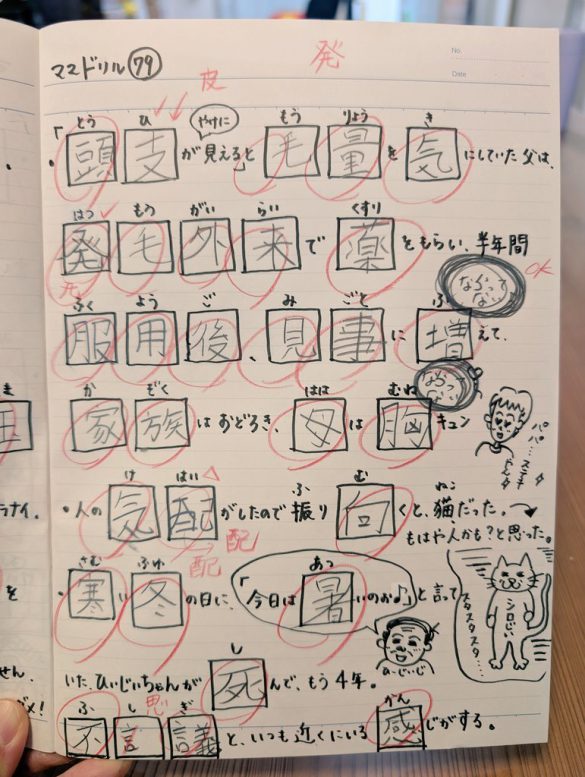 ママドリル79
No.
Date
発
皮
とう ひ やけに もう りょう き
「・頭支が見えると」毛量を気にしていた父は、
はつ もう がい らい くすり
発毛外来で薬をもらい、半年間
OK
ふく よう ご み ごと ふ
服用後、見事に増えて、
か ぞく はは むね
家族はおどろき、母は胸キュン
パパ…ステキやん
け はい ふ む ねこ
・人の気配がしたので振り向くと、猫だった。
もはや人かも?と思った。
配
配
さむ ふゆ あつ
・寒い冬の日に、「今日は暑いのお♪」と言って
ひぃじいじ
シロじい
スタスタスタ…
し
いた、ひいじいちゃんが死んで、もう4年。
ふ し ぎ かん
思
不言議と、いつも近くにいる感じがする。
ま
ラナイ.
を
せん.
メ!